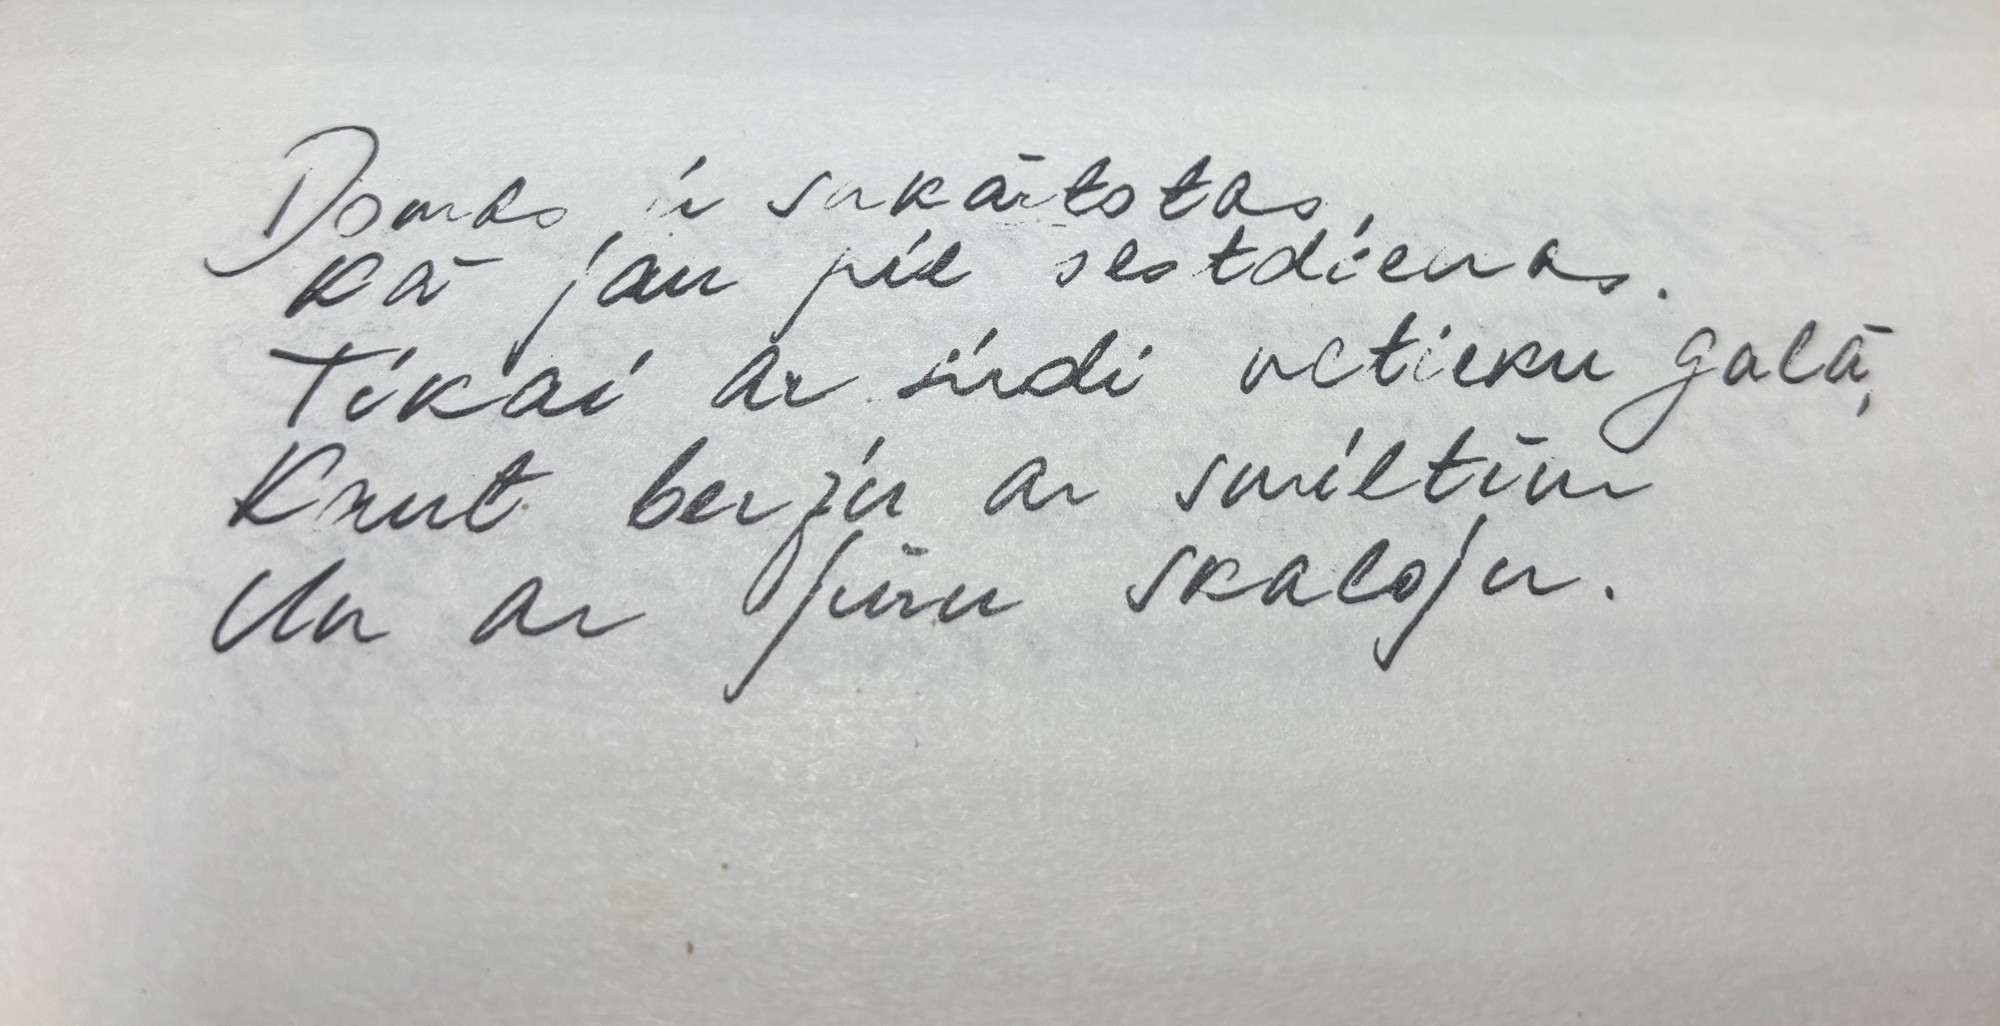 Domas ir sakārtotas,
kā jau pie sestdienas.
Tikai ar sirdi netieku galā,
Kaut beržu ar smiltīm
Un ar jūru skaloju.